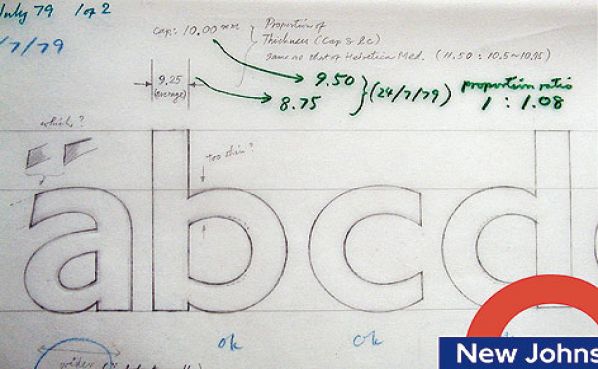 July 79 1 of 2
/7/79
cap: 10.00 mm
Proportion of
Thickness (Cap & lc)
same as that of Helvetica Med. (11.50 : 10.5~10.75)
9.25
(average)
9.50
8.75
(24/7/79)
proportion ratio
1 : 1.08
which?
too thin?
abcd
ok
ok
wider
New Johns